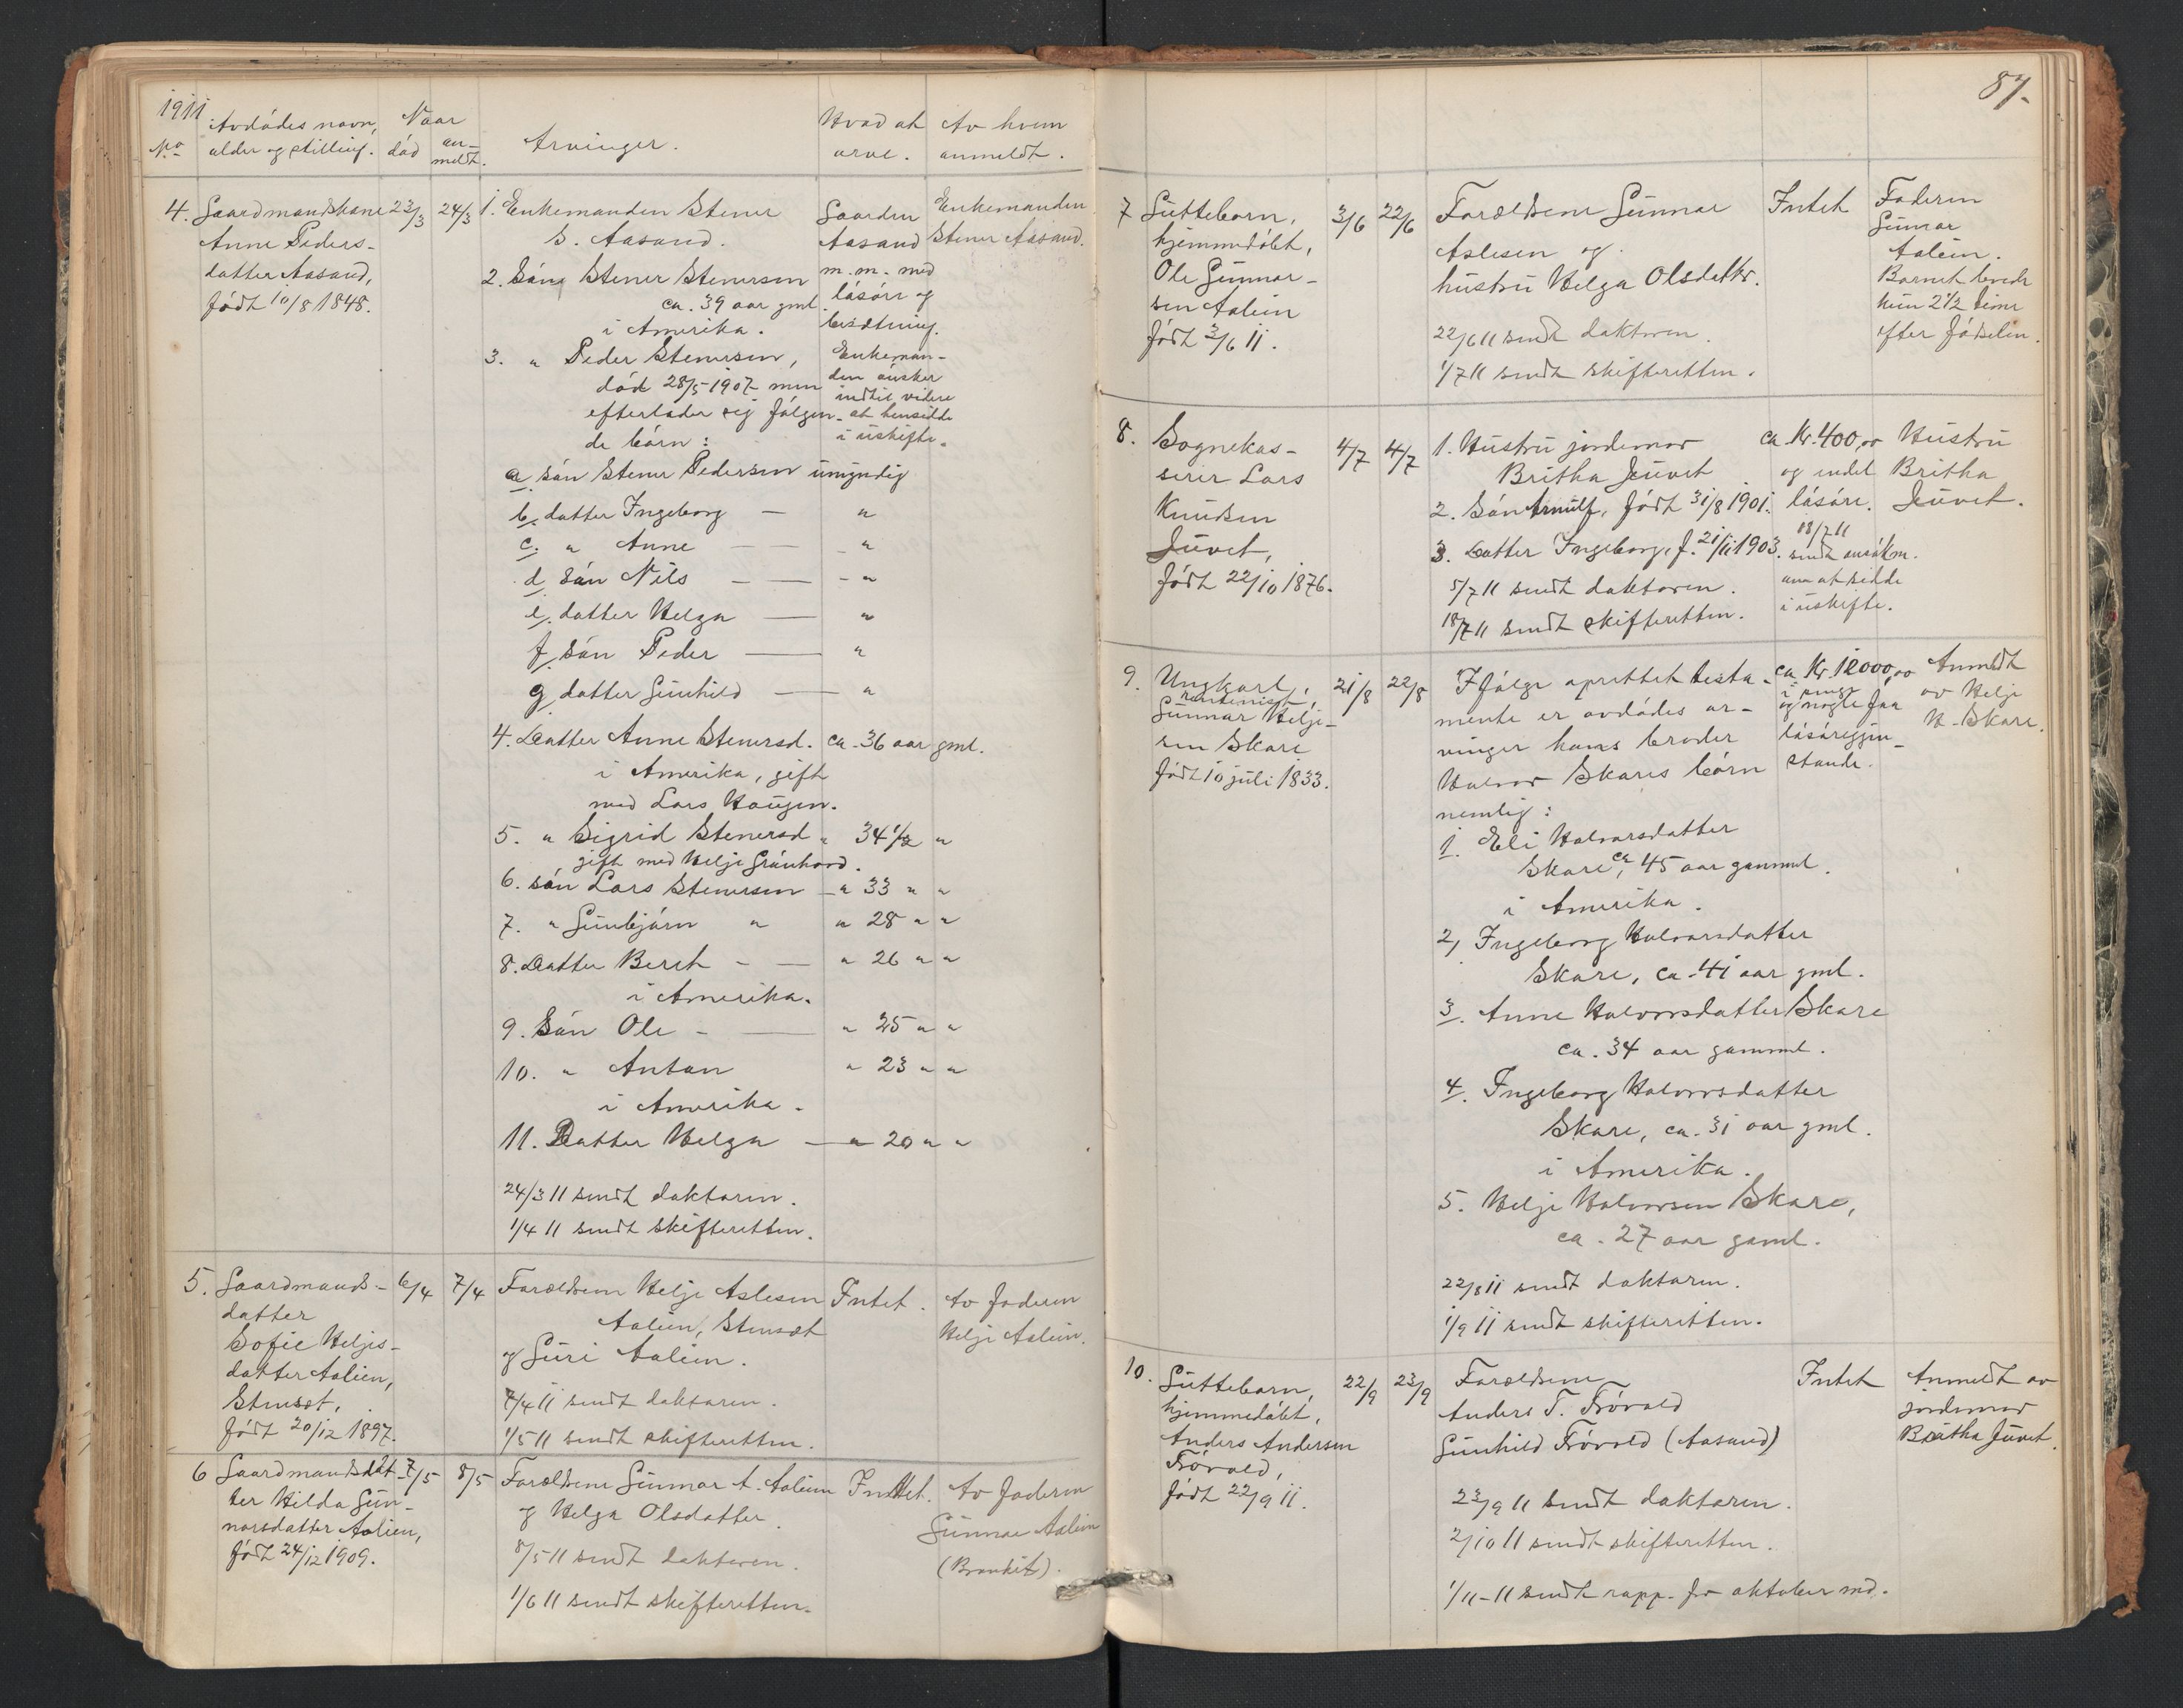 1911
No
Avdødes navn,
alder og stilling.
Naar
død
an-
meldt.
Arvinger.
Hvad at
arve.
Av hvem
anmeldt.
4. Gaardmandskone
Anne Peders-
datter Aasand,
født 10/8 1848.
23/3
24/3
1. Enkemanden Stener
S. Aasand.
2. Søn Stener Stenersen
ca. 39 aar gml.
i Amerika.
3. " Peder Stenersen,
død 28/5-1907 men
efterlader sig følgen-
de børn:
a. søn Stener Pedersen umyndig
b. datter Ingeborg — "
c. " Anne — "
d. søn Nils — "
e. datter Helga — "
f. søn Peder — "
g. datter Gunhild — "
4. Datter Anne Stenersd. ca. 36 aar gml.
i Amerika, gift
med Lars Haugen.
5. " Sigrid Stenersd " 34 1/2 "
gift med Helje Grønhovd.
6. søn Lars Stenersen " 33 " "
7. " Gunbjørn " " 28 " "
8. Datter Berit — " 26 " "
i Amerika.
9. Søn Ole — " 25 " "
10. " Anton " 23 " "
i Amerika.
11. Datter Helga — " 20 " "
24/3 11 sendt doktoren.
1/4 11 sendt skifteretten.
Gaarden
Aasand
m.m. med
løsøre og
besætning.
Enkeman-
den ønsker
indtil videre
at hensidde
i uskifte.
Enkemanden
Stener Aasand.
5. Gaardmands-
datter
Sofie Heljes-
datter Aalien,
Stensæt,
født 20/12 1897.
6/4
7/4
Forældrene Helje Aslesen
Aalien, Stensæt
og Guri Aalien.
7/4 11 sendt doktoren.
1/5 11 sendt skifteretten.
Intet.
Av faderen
Helje Aalien.
6 Gaardmandsdat-
ter Hilda Gun-
narsdatter Aalien,
født 24/12 1909.
7/5
8/5
Forældrene Gunnar A. Aalien
og Helga Olsdatter
8/5 11 sendt doktoren.
1/6 11 sendt skifteretten.
Intet.
Av faderen
Gunnar Aalien
87.
7 Guttebarn,
hjemmedøbt,
Ole Gunnar-
sen Aalien
født 3/6 11.
3/6
22/6
Forældrene Gunnar
Aslesen og
hustru Helga Olsdatter.
22/6 11 sendt doktoren.
1/7 11 sendt skifteretten.
Intet
Faderen
Gunnar
Aalien.
Barnet levede
kun 2 1/2 time
efter fødselen.
8. Sognekas-
serer Lars
Knudsen
Juvet,
født 22/10 1876.
4/7
4/7
1. Hustru jordemor
Britha Juvet
2. Søn Arnulf, født 31/8 1901.
3. Datter Ingeborg, f. 21/11 1903.
5/7 11 sendt doktoren.
18/7 11 sendt skifteretten.
ca. Kr. 400,00
og endel
løsøre.
18/7 11
sendt ansøkn.
om at sidde
i uskifte.
Hustru
Britha
Juvet.
9. Ungkarl,
Gunnar Helje-
sen Skare
født 10 juli 1833.
21/8
22/8
Ifølge oprettet testa-
mente er avdødes ar-
vinger hans broder
Halvor Skares børn
nemlig:
1. Eli Halvorsdatter
Skare, ca 45 aar gammel.
i Amerika.
2, Ingeborg Halvorsdatter
Skare, ca. 41 aar gml.
3. Anne Halvorsdatter Skare
ca. 34 aar gammel.
4. Ingeborg Halvorsdatter
Skare, ca. 31 aar gml.
i Amerika.
5. Helje Halvorsen Skare,
ca. 27 aar gaml.
22/8 11 sendt doktoren.
1/9 11 sendt skifteretten.
ca. Kr. 12000,00
i penge
og nogle faa
løsøregjen-
stande.
Anmeldt
av Helje
H. Skare.
10. Guttebarn,
hjemmedøbt,
Anders Andersen
Frøvold,
født 22/9 11.
22/9
23/9
Forældrene
Anders T. Frøvold
Gunhild Frøvold (Aasand)
23/9 11 sendt doktoren.
2/10 11 sendt skifteretten.
1/11-11 sendt rapp. for oktober md.
Intet
Anmeldt av
jordemor
Britha Juvet.